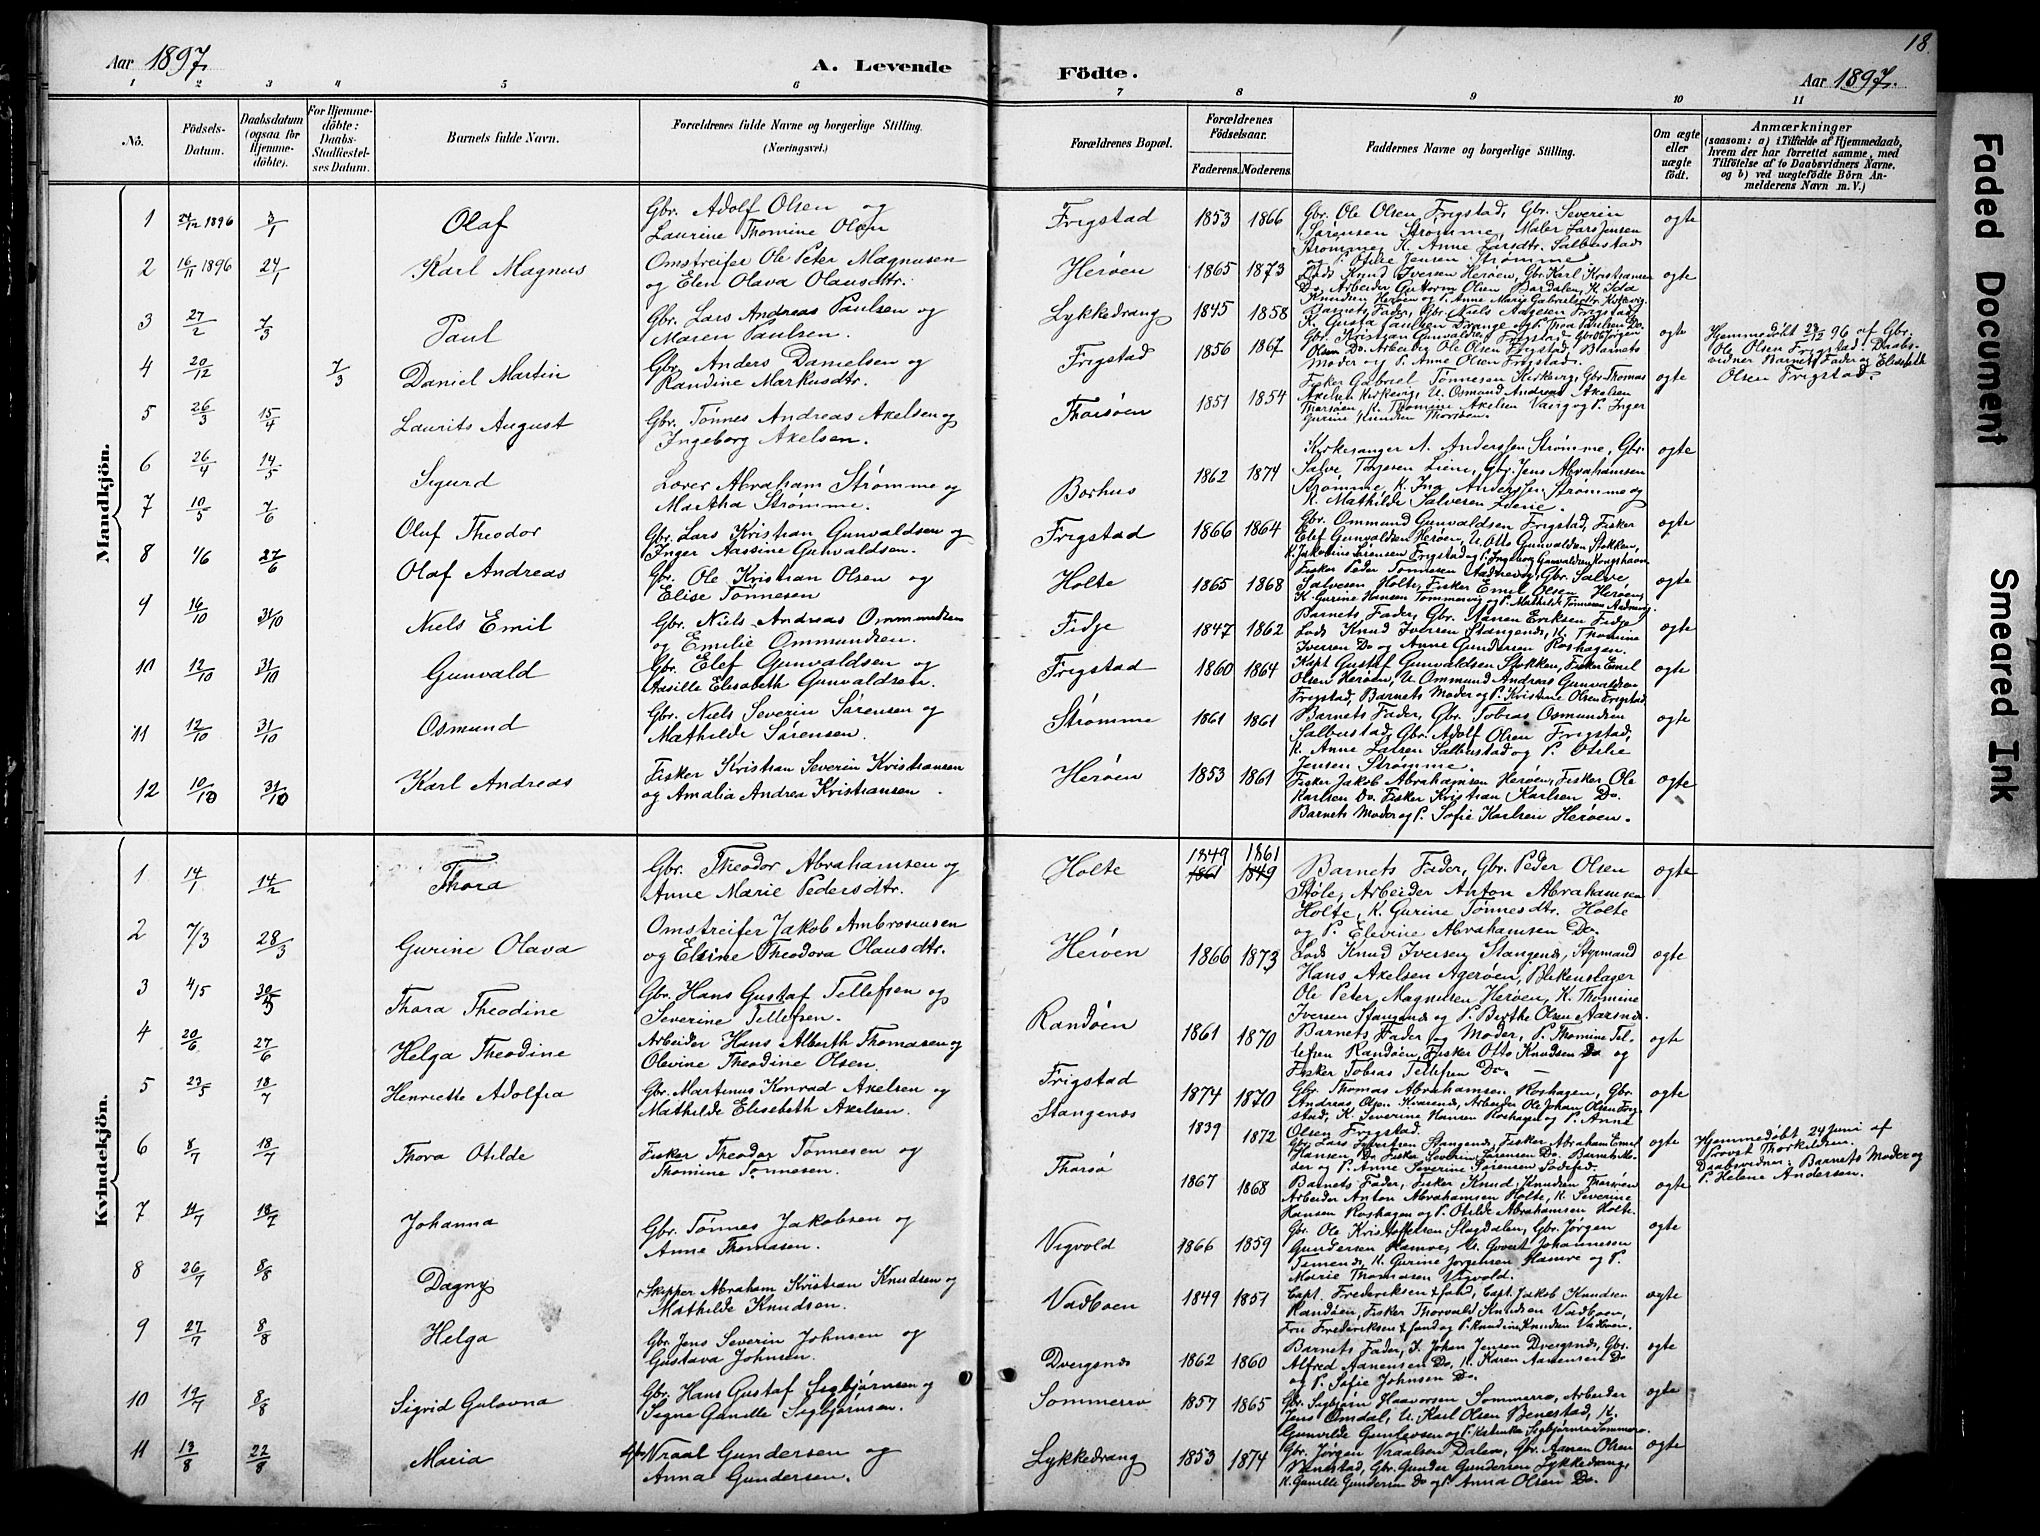 18.
Aar 1897.
A. Levende
Födte.
Aar 1897.
1 2 3 4 5 6 7 8 9 10 11
No.
Födsels-Datum.
Daabsdatum (ogsaa för Hjemmedöbte).
For Hjemmedöbte: Daabs-Stadfæstelses Datum.
Barnets fulde Navn.
Forældrenes fulde Navne og borgerlige Stilling.
(Næringsvei.)
Forældrenes Bopæl.
Forældrenes Födselsaar.
Faderens. Moderens.
Faddernes Navne og borgerlige Stilling.
Om ægte eller uægte födt.
Anmærkninger
(saasom: a) i Tilfælde af Hjemmedaab, hvem der har forrettet samme, med Tilföielse af to Daabsvidners Navne, og b) ved uægtefödte Börn Anmelderens Navn m. V.)
Mandkjön.
1 24/12 1896 3/1 Olaf Gbr. Adolf Olsen og Laurine Thomine Olsen Frigstad 1853 1866 Gbr. Ole Olsen Frigstad, Gbr. Severin Sørensen Strømme, Maler Lars Jensen Strømme, K. Anne Larsdtr. Salbustad og P. Otilie Jensen Strømme. ogte
2 16/11 1896 24/1 Karl Magnus Omstreifer Ole Peter Magnusen og Elen Olava Olausdtr. Herøen 1865 1873 Lods Knud Iversen Herøen, Gbr. Karl Kristiansen Do, Arbeider Guttorm Olsen Bardalen, K. Ida Knudsen Herøen og P. Anne Marie Gabrielsdtr. Kirkevig. ogte
3 27/2 7/3 Paul Gbr. Lars Andreas Paulsen og Maren Paulsen. Lykkedrang 1845 1858 Barnets Fader, Gbr. Niels Aagesen Frigstad, K. Gusta Paulsen Drange og P. Thea Paulsen Do. ogte
4 20/12 7/3 Daniel Martin Gbr. Anders Danielsen og Randine Markusdtr. Frigstad 1856 1867 Gbr. Kristian Gunvaldsen Frigstad, Gbr. Jörgen Olsen Do. Arbeider Ole Olsen Frigstad, Barnets Moder og P. Anne Olsen Frigstad. ogte
Hjemmedöbt 28/12 96 af Gbr. Ole Olsen Frigstad. Daabsvidner Barnets Fader og Elisabeth Olsen Frigstad.
5 26/3 15/4 Laurits August Gbr. Tønnes Andreas Axelsen og Ingeborg Axelsen. Tharsøen 1851 1854 Fisker Gabriel Tønnesen Kirkevig, Gbr. Thomas Axelsen Kirkevig, U. Osmund Andreas Axelsen Tharsøen, K. Thomine Axelsen Vaag og P. Inger Gurine Knudsen Thorsøen.
6 26/4 14/5 Sigurd Lærer Abraham Strømme og Martha Strømme. Borhus 1862 1874 Kirkesanger A. Anderssen Strømme, Gbr. Salve Torjesen Liene, Gbr. Jens Abrahamsen Strømme, K. Ina Anderssen Strømme og K. Mathilde Salvesen Liene. ogte
7 10/5 7/6 Oluf Theodor Gbr. Lars Kristian Gunvaldsen og Inger Aassine Gunvaldsen. Frigstad 1866 1864 Gbr. Ommund Gunvaldsen Frigstad, Fisker Elef Gunvaldsen Herøen, U. Otto Gunvaldsen Stokken, K. Jakobine Sørensen Frigstad og P. Ingeborg Gunvaldsen Kongshavn. ogte
8 1/6 27/6 Olaf Andreas Gbr. Ole Kristian Olsen og Elise Tønnesen Holte 1865 1868 Fisker Peder Tønnesen Aadnevig, Gbr. Salve Salvesen Holte, Fisker Emil Olsen Herøen, K. Gurine Hansen Tømmervig og P. Mathilde Tønnesen Aadnevig. ogte
9 16/10 31/10 Niels Emil Gbr. Niels Andreas Ommundsen og Emilie Ommundsen. Fidje 1847 1862 Barnets Fader, Gbr. Aanen Eriksen Fidje, Lods Knud Iversen Stangenæs, K. Thomine Iversen Do og Anne Gundersen Roshagen. ogte
10 12/10 31/10 Gunvald Gbr. Elef Gunvaldsen og Aasille Elisabeth Gunvaldsen. Frigstad 1860 1864 Kapt. Gustaf Gunvaldsen Stokken, Fisker Emil Olsen Herøen, U. Ommund Andreas Gunvaldsen Frigstad, Barnets Moder og P. Kristine Olsen Frigstad. ogte
11 12/10 31/10 Osmund Gbr. Niels Severin Sørensen og Mathilde Sørensen. Strømme 1861 1861 Barnets Fader, Gbr. Tobias Osmundsen Salbustad, Gbr. Adolf Olsen Frigstad, K. Anne Larsen Salbustad og P. Otilie Jensen Strømme. ogte
12 10/10 31/10 Karl Andreas Fisker Kristian Severin Kristiansen og Amalia Andrea Kristiansen. Herøen 1853 1861 Fisker Jakob Abrahamsen Herøen, Fisker Ole Karlsen Do. Fisker Kristian Karlsen Do. Barnets Moder og P. Sofie Karlsen Herøen. ogte
Kvindekjön.
1 14/1 14/2 Thora Gbr. Theodor Abrahamsen og Anne Marie Pedersdtr. Holte 1849 1861 1861 1849 Barnets Fader, Gbr. Peder Olsen Støle, Arbeider Anton Abrahamsen Holte, K. Gurine Tønnesdtr. Holte og P. Elevine Abrahamsen Do. ogte
2 7/3 28/3 Gurine Olava Omstreifer Jakob Ambrosiussen og Elsine Theodora Olausdtr. Herøen 1866 1873 Lods Knud Iversen Stangenæs, Styrmand Hans Axelsen Agerøen, Blikkenslager Ole Peter Magnussen Herøen, K. Thomine Iversen Stangenæs og P. Berthe Olsen Aarsnæs. ogte
3 4/5 30/5 Thora Theodine Gbr. Hans Gustaf Tellefsen og Severine Tellefsen. Randøen 1861 1870 Barnets Fader og Moder, P. Thomine Tellefsen Randøen, Fisker Otto Knudsen Do og Fisker Tobias Tellefsen Do. ogte
4 20/6 27/6 Helga Theodine Arbeider Hans Alberth Thomasen og Olevine Theodine Olsen. Frigstad 1874 1870 Gbr. Thomas Abrahamsen Roshagen, Gbr. Andreas Olsen Kvarenes, Arbeider Ole Johan Olsen Frigstad, K. Severine Hansen Roshagen og P. Anne Olsen Frigstad. ogte
5 23/5 18/7 Henriette Adolfia Gbr. Martinus Konrad Axelsen og Mathilde Elisabeth Axelsen. Stangenæs 1839 1872 Gbr. Lars Syvertsen Stangenæs, Fisker Abraham Emil Hansen Do. Fisker Severin Sørensen Do. Barnets Moder og P. Anne Severine Sørensen. ogte
Hjemmedöbt 24 Juni af Provst Thorkildsen. Daabsvidner: Barnets Moder og P. Helene Andersen.
6 8/7 18/7 Thora Otilde Fisker Theodor Tønnesen og Thomine Tønnesen. Tharsø 1867 1868 Barnets Fader, Fisker Knud Knudsen Tharsøen, Arbeider Anton Abrahamsen Holte, K. Severine Hansen Roshagen og P. Otilde Abrahamsen Holte. ogte
7 11/7 18/7 Johanna Gbr. Tønnes Jakobsen og Anne Thomasen. Vigvold 1866 1859 Gbr. Ole Kristoffersen Slagdalen, Gbr. Jørgen Gundersen Hamre, U. Govert Johannesen Timenes, K. Gurine Jørgensen Hamre og P. Marie Thomasen Vigvold. ogte
8 26/7 8/8 Dagny Skipper Abraham Kristian Knudsen og Mathilde Knudsen. Vadboen 1849 1851 Capt. Frederiksen Xsand, Capt. Jakob Knudsen Randøen, Fisker Thorvald Knudsen Vadboen, Fru Frederiksen Xsand og P. Randine Knudsen Vadboen. ogte
9 27/7 8/8 Helga Gbr. Jens Severin Johnsen og Gustava Johnsen. Dvergsnæs 1862 1860 Barnets Fader, Johan Jensen Dvergsnæs, Gbr. Alfred Aanensen Do, K. Karen Aanensen Do og P. Sofie Johnsen Do. ogte
10 19/7 8/8 Sigrid Gulovna Gbr. Hans Gustaf Sigbjørnsen og Signe Gunille Sigbjørnsen. Sommerro 1857 1865 Gbr. Sigbjørn Haavorsen Sommerro, Arbeider Jens Omdal, U. Karl Olsen Benestad, K. Gunvilde Gunlevsen og P. Kathinka Sigbjørnsen Sommerro. ogte
11 13/8 22/8 Maria Gbr. Vraal Gundersen og Anna Gundersen. Lykkedrang 1853 1874 Gbr. Jørgen Vraalsen Dalen, Gbr. Aanen Olsen Benestad, Gbr. Gunder Gundersen Lykkedrang, K. Gunille Gundersen Do og P. Anna Olsen Do. ogte
Faded Document
Smeared Ink